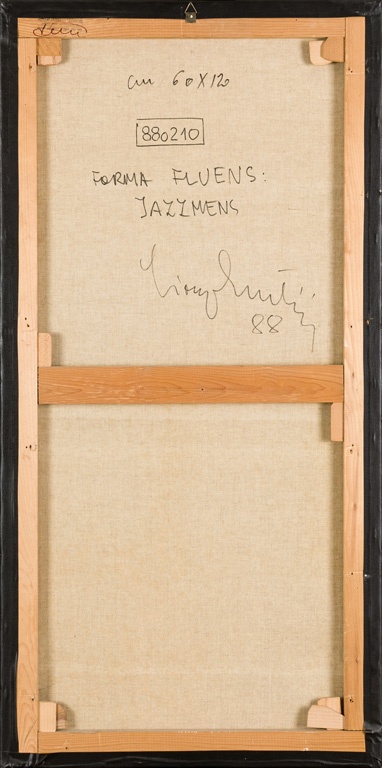 cm 60X120
880210
FORMA FLUENS:
JAZZMENS
88